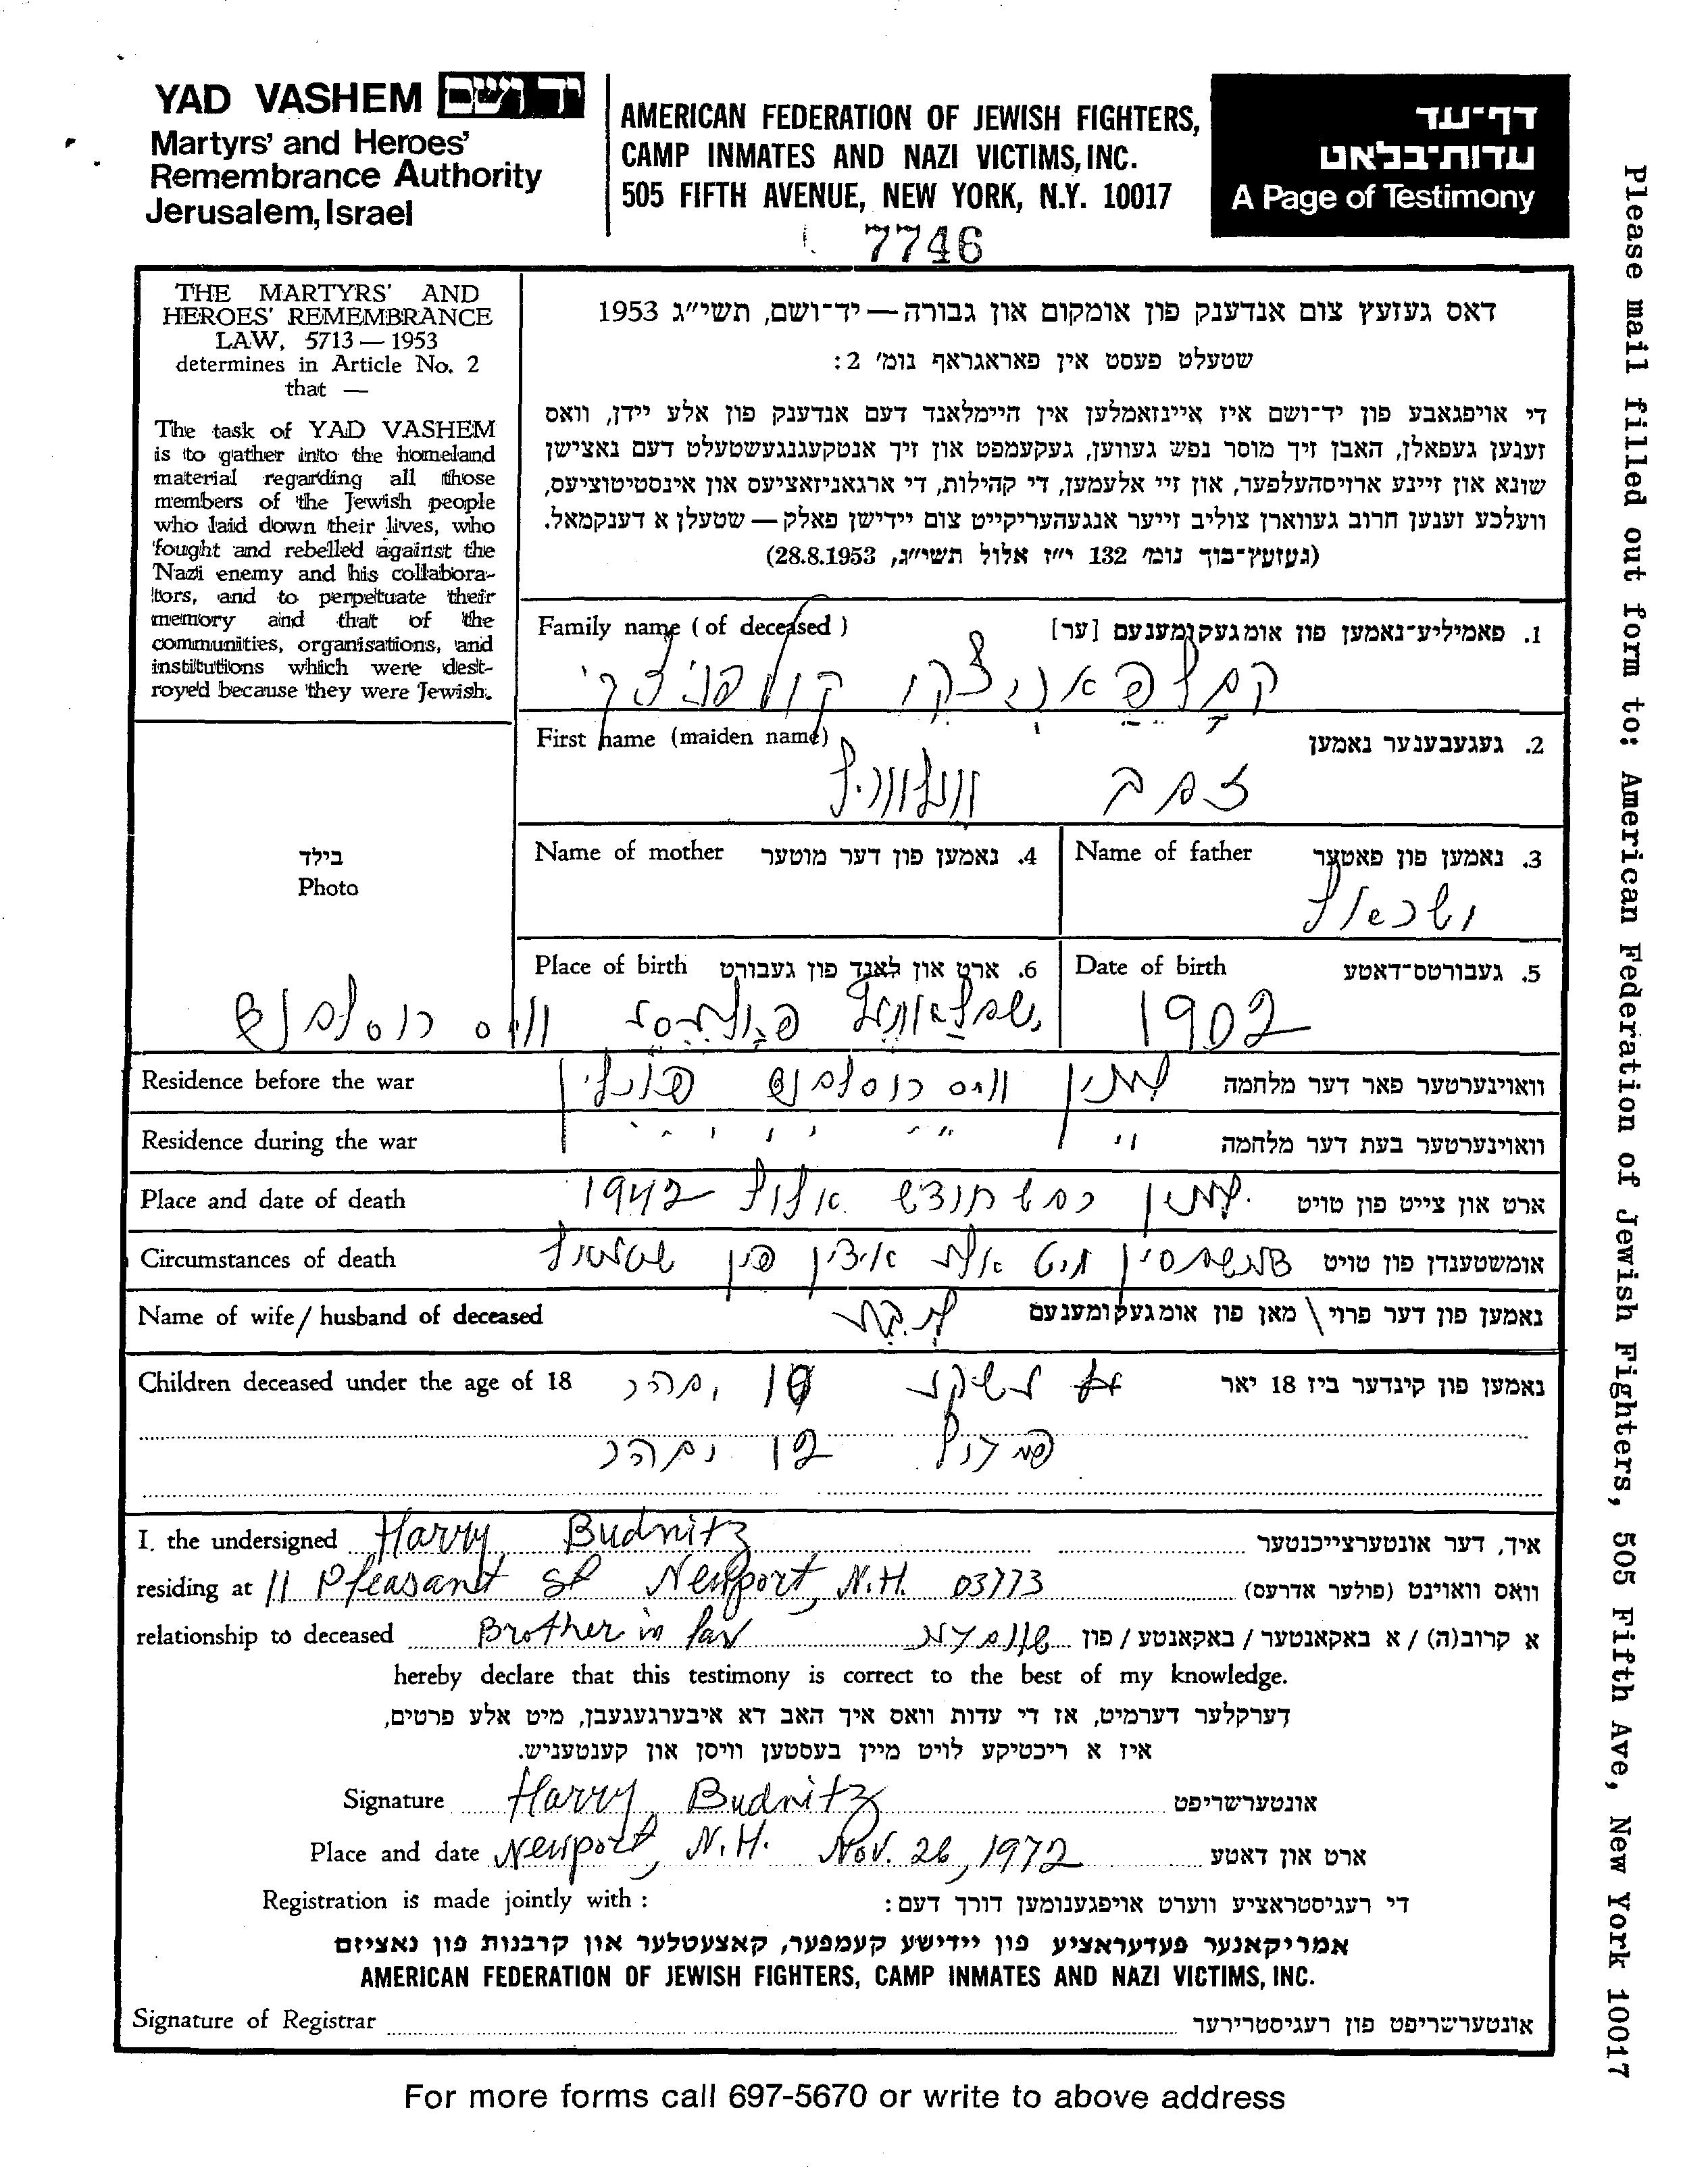 YAD VASHEM יד ושם
Martyrs' and Heroes'
Remembrance Authority
Jerusalem, Israel
AMERICAN FEDERATION OF JEWISH FIGHTERS,
CAMP INMATES AND NAZI VICTIMS, INC.
505 FIFTH AVENUE, NEW YORK, N.Y. 10017
7746
דף-עד
עדות-בלאט
A Page of Testimony
THE MARTYRS' AND
HEROES' REMEMBRANCE
LAW, 5713 — 1953
determines in Article No. 2
that —
The task of YAD VASHEM
is to gather into the homeland
material regarding all those
members of the Jewish people
who laid down their lives, who
fought and rebelled against the
Nazi enemy and his collabora-
tors, and to perpetuate their
memory and that of the
communities, organisations, and
institutions which were dest-
royed because they were Jewish.
דאס געזעץ צום אנדענק פון אומקום און גבורה — יד-ושם, תשי״ג 1953
שטעלט פעסט אין פאראגראף נומ׳ 2:
די אויפגאבע פון יד-ושם איז איינזאמלען אין היימלאנד דעם אנדענק פון אלע יידן, וואס
זענען געפאלן, האבן זיך מוסר נפש געווען, געקעמפט און זיך אנטקעגנגעשטעלט דעם נאצישן
שונא און זיינע ארויסהעלפער, און זיי אלעמען, די קהילות, די ארגאניזאציעס און אינסטיטוציעס,
וועלכע זענען חרוב געווארן צוליב זייער אנגעהעריקייט צום יידישן פאלק — שטעלן א דענקמאל.
(געזעץ-בוך נומ׳ 132 י״ז אלול תשי״ג, 28.8.1953)
Family name (of deceased) 1. פאמיליע-נאמען פון אומגעקומענעם [ער]
First name (maiden name) 2. געגעבענער נאמען
זאב וועלוויל
בילד
Photo
Name of mother 4. נאמען פון דער מוטער
Name of father 3. נאמען פון פאטער
ישראל
Place of birth 6. ארט און לאנד פון געבורט
Date of birth 5. געבורטס-דאטע
1902
Residence before the war וואוינערטער פאר דער מלחמה
Residence during the war וואוינערטער בעת דער מלחמה
Place and date of death 1942 אלול חודש ארט און צייט פון טויט
Circumstances of death אומשטענדן פון טויט
Name of wife / husband of deceased נאמען פון דער פרוי \ מאן פון אומגעקומענעם
Children deceased under the age of 18 נאמען פון קינדער ביז 18 יאר
12
I, the undersigned Harry Budnitz איך, דער אונטערצייכנטער
residing at 11 Pleasant St Newport, N.H. 03773 וואס וואוינט (פולער אדרעס)
relationship to deceased Brother in law שוואגער א קרוב(ה) / א באקאנטער / באקאנטע / פון
hereby declare that this testimony is correct to the best of my knowledge.
דערקלער דערמיט, אז די עדות וואס איך האב דא איבערגעגעבן, מיט אלע פרטים,
איז א ריכטיקע לויט מיין בעסטען וויסן און קענטעניש.
Signature Harry Budnitz אונטערשריפט
Place and date Newport, N.H. Nov. 26, 1972 ארט און דאטע
Registration is made jointly with : די רעגיסטראציע ווערט אויפגענומען דורך דעם:
אמריקאנער פעדעראציע פון יידישע קעמפער, קאצעטלער און קרבנות פון נאציזם
AMERICAN FEDERATION OF JEWISH FIGHTERS, CAMP INMATES AND NAZI VICTIMS, INC.
Signature of Registrar אונטערשריפט פון רעגיסטרירער
For more forms call 697-5670 or write to above address
Please mail filled out form to: American Federation of Jewish Fighters, 505 Fifth Ave, New York 10017